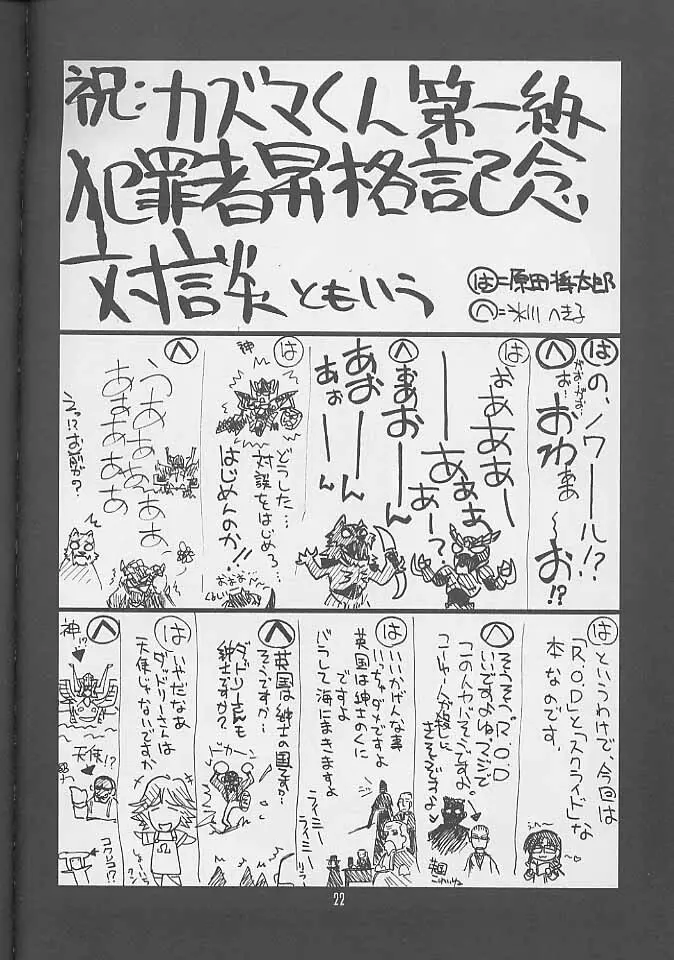 祝:カズマくん第一級
犯罪者昇格記念
対談ともいう
は=原田
へ=氷川へきる
は の、ノワール!?
へ がお…がおお…
おわああ〜お!?
は おああああー
ーあぁぁ
あー?
へ おぉあおーん
あおーーん
あぉーん
は
神
どうした…
対談をはじめろ…
はじめんのか!!
おおお…
へ うあああああ
あぁあああぁぁ
えっ!?お前が?
は というわけで、今回は
「R.O.D」と「スクライド」な
本なのです。
へ そうそう。R.O.D
いいですよねマジで
このへんヤバそうですよ。
は いいかげんな事
いっちゃダメですよ
英国は紳士のくに
ですよ
バラして海にまきますよ
へ 英国は紳士の国ですか…
そうですか…
ダッドリーさんも
紳士ですか?
ドカーン
は いやだなあ
ダッドリーさんは
天使じゃないですか
へ
神!?
天使!?
コワレコ!?
22